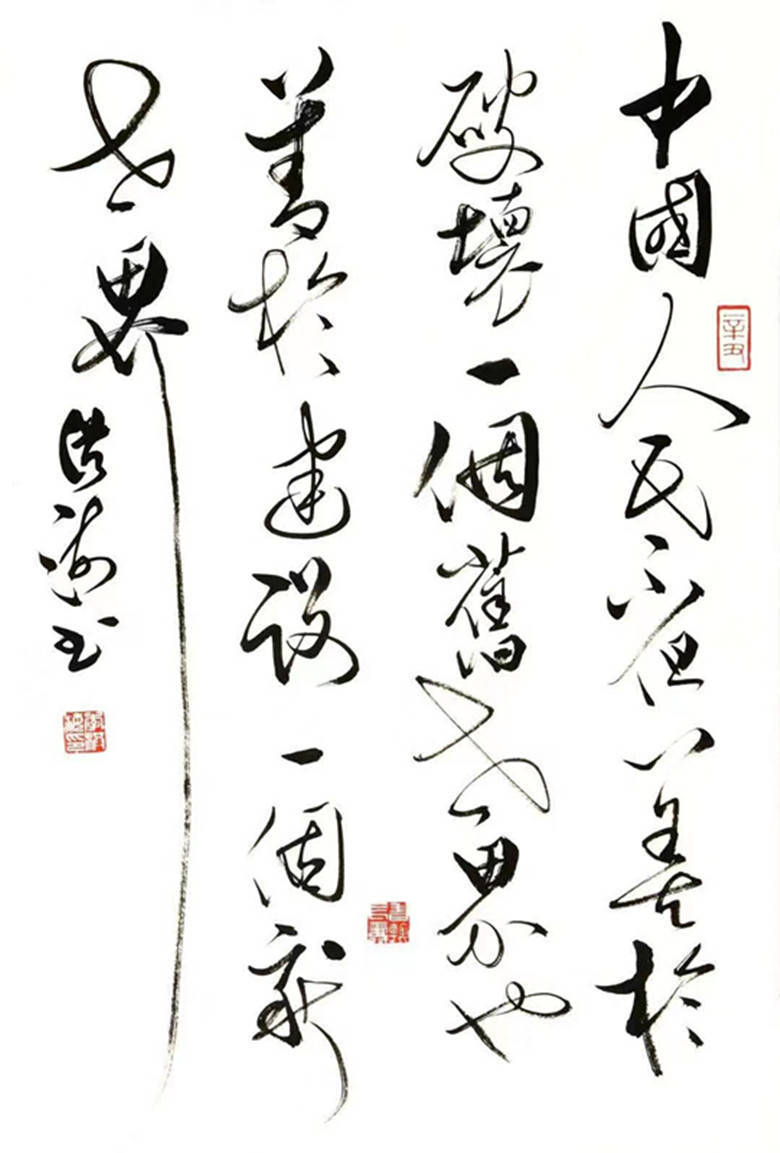 中國人民不但善於
破壞一個舊世界也
善於建設一個新
世界
书
辛丑